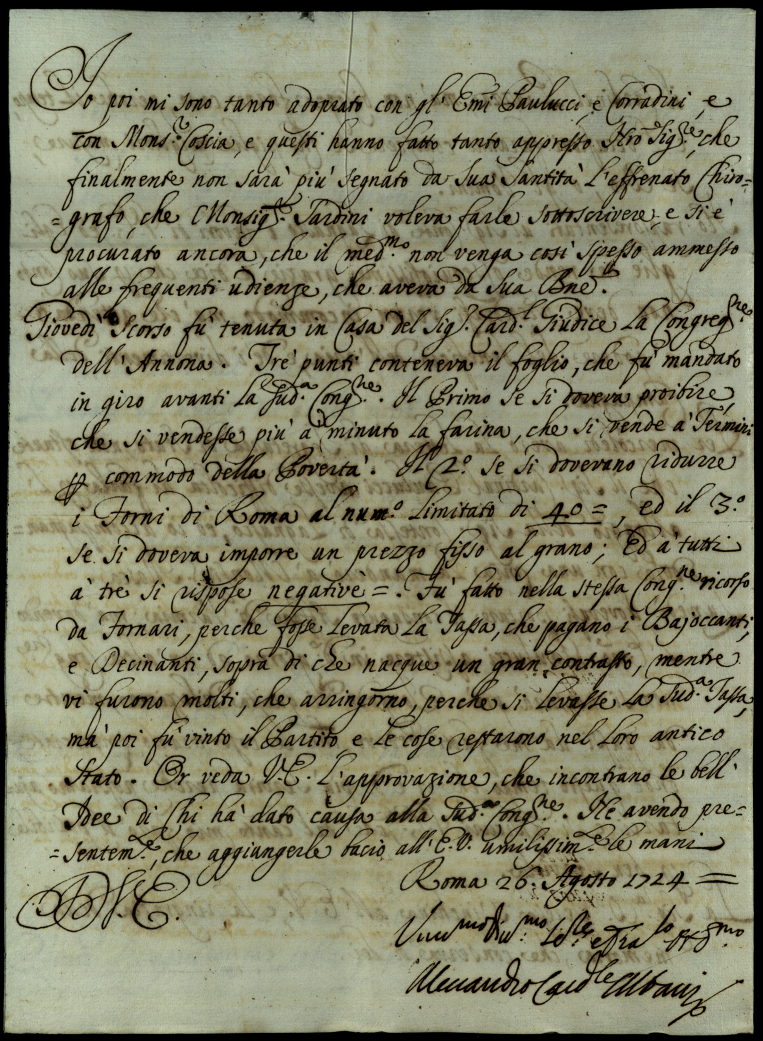 Io poi mi sono tanto adoprato con gl' Emi Paulucci, e Corradini, e
con Mons.r Coscia, e questi hanno fatto tanto appresso Nro Sig.re, che
finalmente non sarà più segnato da Sua Santità l'effrenato Chiro-
=grafo, che Monsig.r Sardini voleva farle sottoscrivere, e si è
procurato ancora, che il med.mo non venga così spesso ammesso
alle frequenti udienze, che aveva da Sua Bne.
Giovedì scorso fù tenuta in Casa del Sig.r Card.l Giudice la Congreg.ne
dell'Annona. Trè punti conteneva il foglio, che fù mandato
in giro avanti la sud.a Cong.ne. Il Primo se si doveva proibire
che si vendesse più à minuto la farina, che si vende à Termini
p commodo della Povertà. Il 2.o se si dovevano ridurre
i Forni di Roma al num.o limitato di 40=, ed il 3.o
se si doveva imporre un prezzo fisso al grano; Ed à tutti
à trè si rispose negativè=. Fù fatto nella stessa Cong.ne ricorso
da Fornari, perche fosse levata la Tassa, che pagano i Bajoccanti,
e Decinanti, sopra di che nacque un gran contrasto, mentre
vi furono molti, che arringorno, perche si levasse la sud.a Tassa,
mà poi fù vinto il Partito, e le cose restarono nel loro antico
stato. Or veda V.E. l'approvazione, che incontrano le bell'
Idee di Chi hà dato causa alla sud.a Cong.ne. Nè avendo pre-
=sentem.e, che aggiungerle bacio all'E.V. umilissim.e le mani
Roma 26. Agosto 1724=
D V.E.
Alessandro Card.le Albani